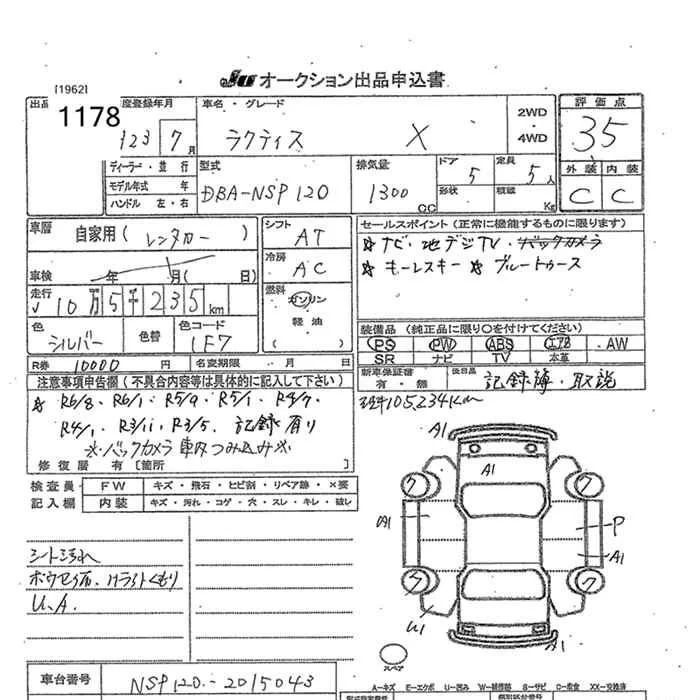 [1962]
JU オークション出品申込書
出品
1178
度登録年月
車名・グレード
2WD
・
4WD
評価点
H23 7月
ラクティス X
35
ディーラー・並行
型式
排気量
ドア
定員
モデル年式 年
DBA-NSP120
1300cc
5
5人
外装 内装
ハンドル 左・右
形状
積載 Kg
C C
車歴
自家用(レンタカー)
シフト
AT
セールスポイント(正常に機能するものに限ります)
☆ナビ・地デジTV・バックカメラ
冷房
AC
☆キーレスキー ☆ブルートゥース
車検 年 月(日)
走行
10万5千235km
燃料
ガソリン
・
軽油
色
シルバー
色替
色コード
1E7
装備品(純正品に限り○を付けてください)
PS PW ABS エアB AW
SR ナビ TV 本革
R券 10000円
名変期限 月 日
新車保証書
有・無
後日品
記録簿・取説
注意事項申告欄(不具合内容等は具体的に記入して下さい)
☆ R6/8、R6/1、R5/9、R5/1、R4/7、
R4/1、R3/11、R3/5、記録有り
※バックカメラ車内つみ込み※
修復歴 有[箇所
105,234km
検査員
記入欄
FW
キズ・飛石・ヒビ割・リペア跡・×要
内装
キズ・汚れ・コゲ・穴・スレ・キレ・破レ
A1
A1
A1
P
A1
U1
7
7
7
7
スペア
シート汚れ
U.A.
車台番号
NSP120-2015043
A-キズ E-エクボ U-凹み W-補修跡 S-サビ C-腐食 XX-交換済